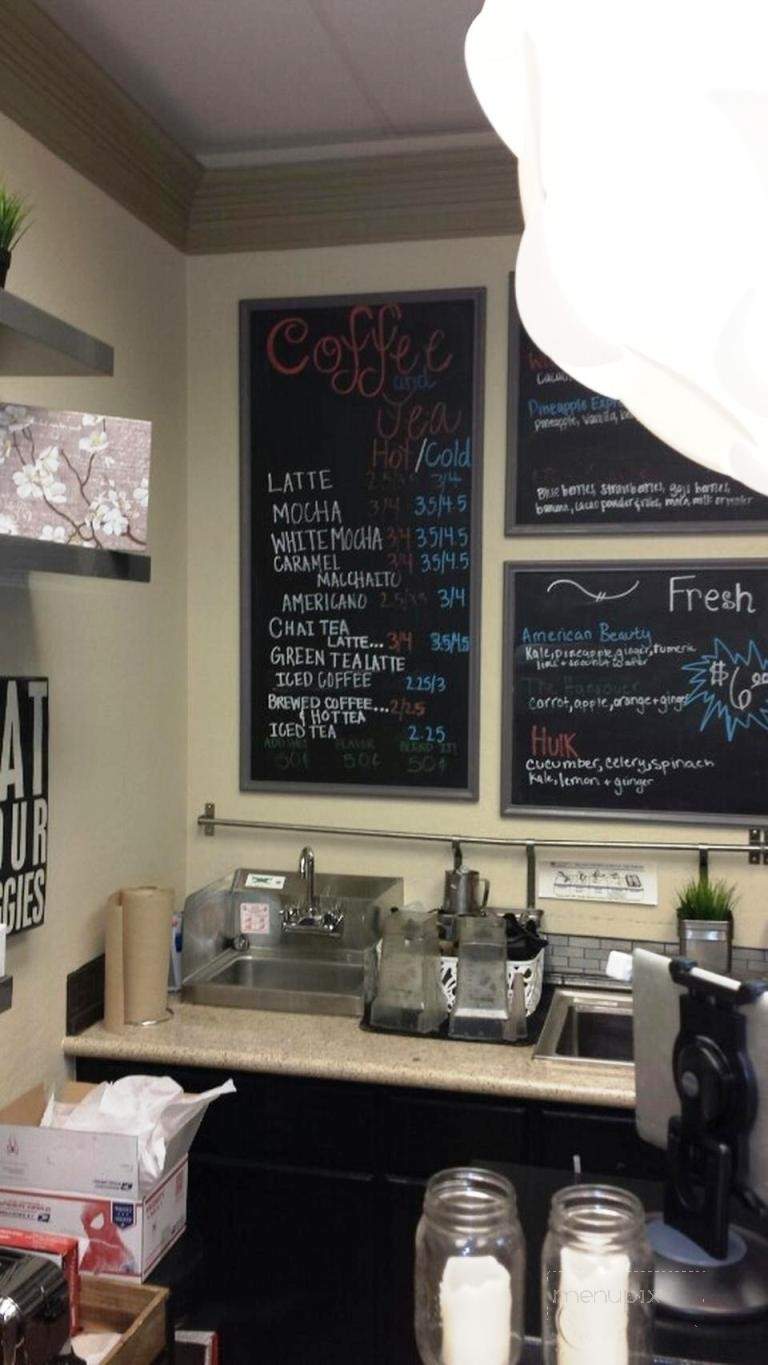 Coffee
and
Tea
Hot/Cold
LATTE 3/4
MOCHA 3/4 3.5/4.5
WHITE MOCHA 3/4 3.5/4.5
CARAMEL 3/4 3.5/4.5
MACCHAITO
AMERICANO 3/4
CHAI TEA
LATTE... 3/4 3.5/4.5
GREEN TEA LATTE
ICED COFFEE 2.25/3
BREWED COFFEE... 2/2.5
& HOT TEA
ICED TEA 2.25
FLAVOR BLEND IT!
50¢ 50¢ 50¢
Pineapple
pineapple, vanilla,
Blueberries, strawberries, goji berries,
banana, cacao powder + nibs, maca, milk or water
Fresh
American Beauty
Kale, pineapple, ginger, turmeric
lime + coconut water
$6
The Hangover
carrot, apple, orange + ginger
Hulk
cucumber, celery, spinach
Kale, lemon + ginger
AT
OUR
GGIES
menupix